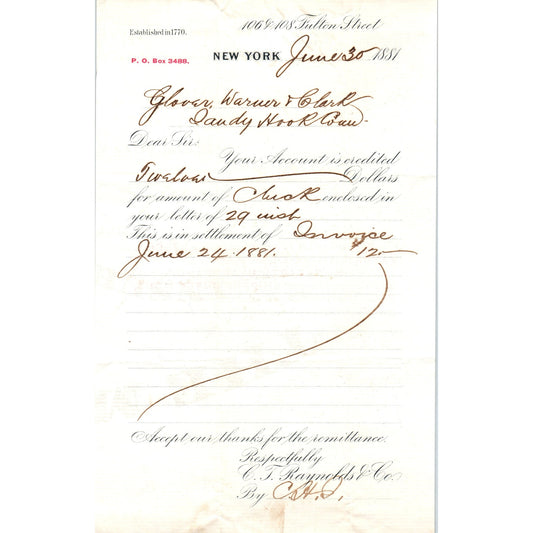 106 & 108 Fulton Street
Established in 1770.
P. O. Box 3488.
NEW YORK June 30 1881
Glover, Warner & Clark
Sandy Hook Conn.
Dear Sir:
Your Account is credited
Twelve Dollars
for amount of Check enclosed in
your letter of 29 inst
This is in settlement of Invoice
June 24. 1881. $12-
Accept our thanks for the remittance.
Respectfully
C. T. Raynolds & Co.
By